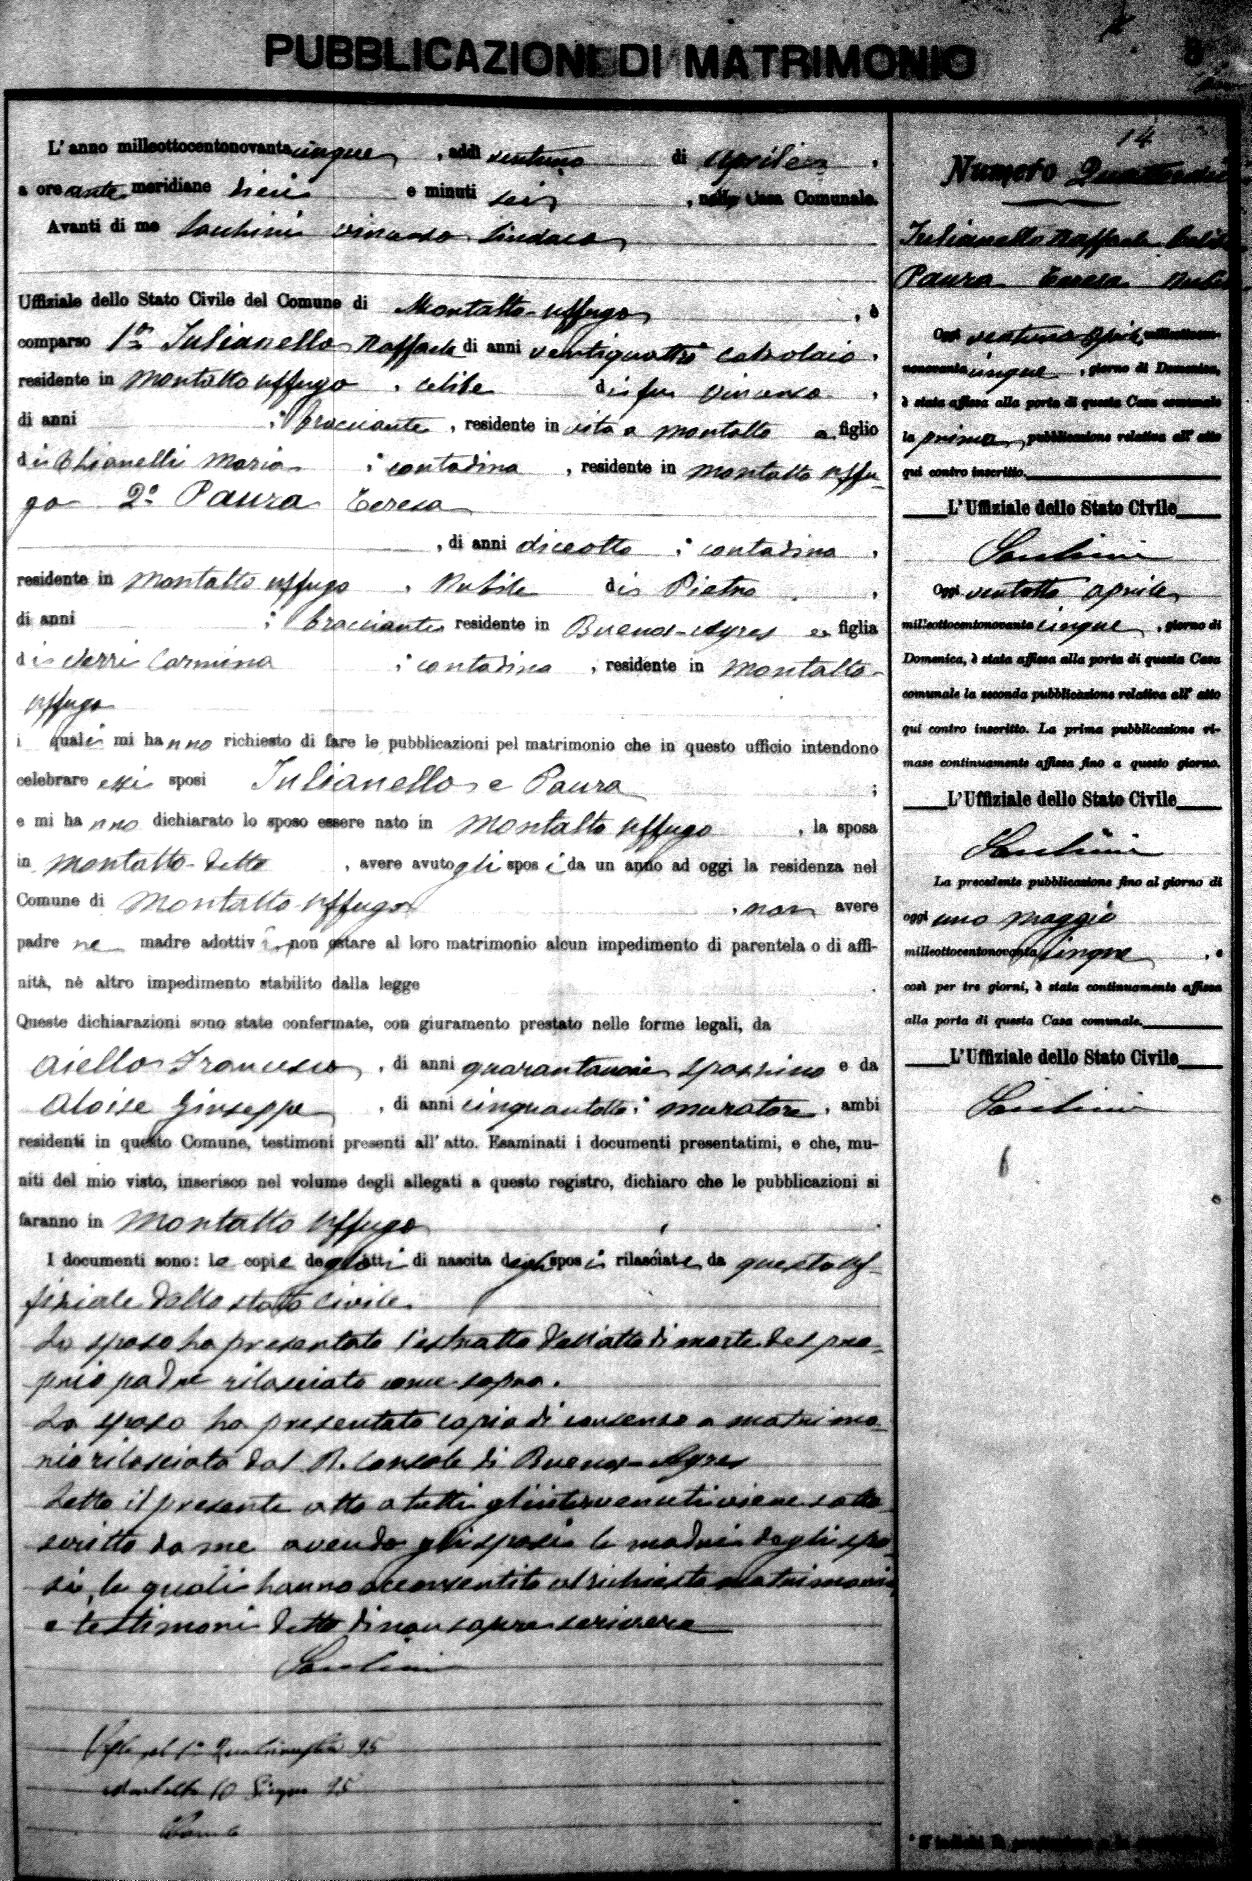 8
PUBBLICAZIONI DI MATRIMONIO
L'anno milleottocentonovantacinque, addì ventuno di aprile,
a ore ante meridiane dieci e minuti sei, nella Casa Comunale.
Avanti di me vincenzo Sindaco
Uffiziale dello Stato Civile del Comune di Montalto Uffugo, è
comparso 1º Iulianello Raffaele di anni ventiquattro calzolaio,
residente in Montalto Uffugo, celibe di fu Vincenzo,
di anni ; bracciante, residente in vita a Montalto e figlio
di Chianelli Maria ; contadina, residente in Montalto Uffu-
go 2º Paura Teresa
, di anni diciotto ; contadina,
residente in Montalto Uffugo, Nubile di Pietro,
di anni ; bracciante residente in Buenos-Ayres e figlia
di Nerri Carmina ; contadina, residente in Montalto
Uffugo
i quali mi hanno richiesto di fare le pubblicazioni pel matrimonio che in questo ufficio intendono
celebrare essi sposi Iulianello e Paura ;
e mi hanno dichiarato lo sposo essere nato in Montalto Uffugo, la sposa
in Montalto detto, avere avuto gli sposi da un anno ad oggi la residenza nel
Comune di Montalto Uffugo, non avere
padre ne madre adottivi, non ostare al loro matrimonio alcun impedimento di parentela o di affi-
nità, nè altro impedimento stabilito dalla legge
Queste dichiarazioni sono state confermate, con giuramento prestato nelle forme legali, da
Aiello Francesco, di anni quarantanove spazzino e da
Aloise Giuseppe, di anni cinquantotto ; muratore, ambi
residenti in questo Comune, testimoni presenti all'atto. Esaminati i documenti presentatimi, e che, mu-
niti del mio visto, inserisco nel volume degli allegati a questo registro, dichiaro che le pubblicazioni si
faranno in Montalto Uffugo.
I documenti sono: le copie degli atti di nascita degli sposi rilasciate da questo uf-
fiziale dello stato civile.
Lo sposo ha presentato l'estratto dell'atto di morte del pro-
prio padre rilasciato come sopra.
La sposa ha presentato copia di consenso a matrimo-
nio rilasciata dal R. Console di Buenos-Ayres
Letto il presente atto a tutti gl'intervenuti viene sotto
scritto da me avendo gli sposi e le madri degli spo-
si, le quali hanno acconsentito al richiesto matrimonio
e testimoni detto di non sapere scrivere
14
Numero Quattordici
Iulianello Raffaele Celibe
Paura Teresa Nubile
Oggi ventuno aprile milleottocento-
novantacinque, giorno di Domenica,
è stata affissa alla porta di questa Casa comunale
la prima pubblicazione relativa all'atto
qui contro inscritto.
L'Uffiziale dello Stato Civile
Oggi ventotto aprile
milleottocentonovantacinque, giorno di
Domenica, è stata affissa alla porta di questa Casa
comunale la seconda pubblicazione relativa all'atto
qui contro inscritto. La prima pubblicazione ri-
mase continuamente affissa fino a questo giorno.
L'Uffiziale dello Stato Civile
La precedente pubblicazione fino al giorno di
oggi uno Maggio
milleottocentonovantacinque, e
così per tre giorni, è stata continuamente affissa
alla porta di questa Casa comunale.
L'Uffiziale dello Stato Civile